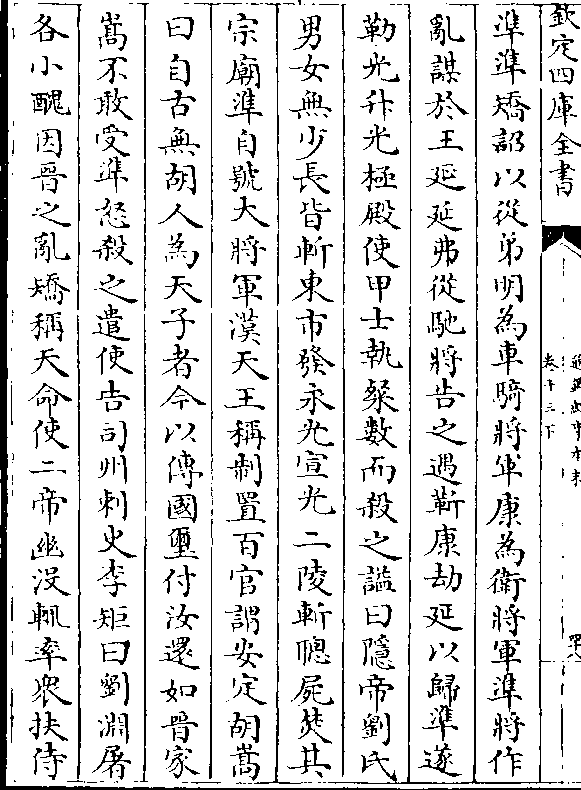 欽定四庫全書
卷十三下
準準矯詔以從弟明為車騎將軍康為衛將軍準將作
亂謀於王延延弗從馳將告之遇靳康劫延以歸準遂
勒兵升光極殿使甲士執粲數而殺之諡曰隱帝劉氏
男女無少長皆斬東市發永光宣光二陵斬聰屍焚其
宗廟準自號大將軍漢天王稱制置百官謂安定胡嵩
曰自古無胡人為天子者今以傳國璽付汝還如晉家
嵩不敢受準怒殺之遣使告司州刺史李矩曰劉淵屠
各小醜因晉之亂矯稱天命使二帝幽没輒率衆扶侍